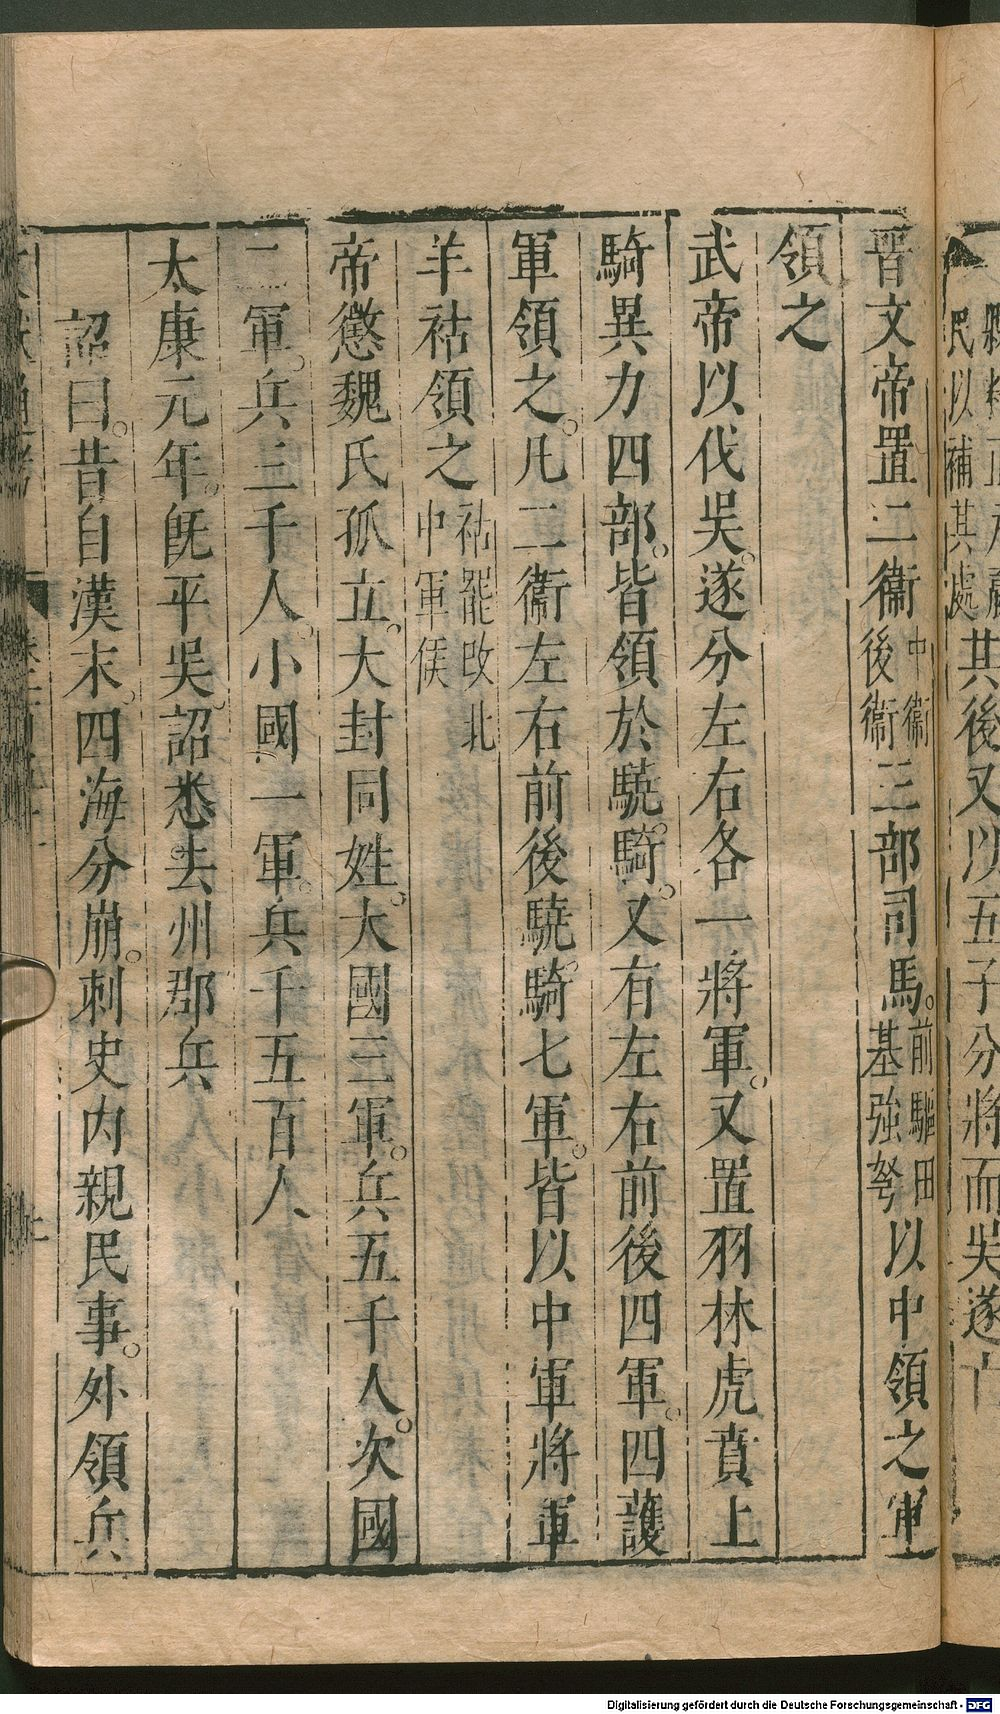 民以補其處其後又以五子分將而吳遂亡
晉文帝置二衞中衞後衞三部司馬。前驅田基強弩以中領之軍
領之
武帝以伐吳。遂分左右各一將軍。又置羽林虎賁上
騎異力四部。皆領於驍騎。又有左右前後四軍。四護
軍領之。凡二衞左右前後驍騎七軍。皆以中軍將軍
羊祜領之祜罷改北中軍候
帝懲魏氏孤立。大封同姓。大國三軍。兵五千人。次國
二軍。兵三千人。小國一軍。兵千五百人
太康元年。旣平吳。詔悉去州郡兵
詔曰。昔自漢末。四海分崩。刺史內親民事。外領兵
Digitalisierung gefördert durch die Deutsche Forschungsgemeinschaft - DFG